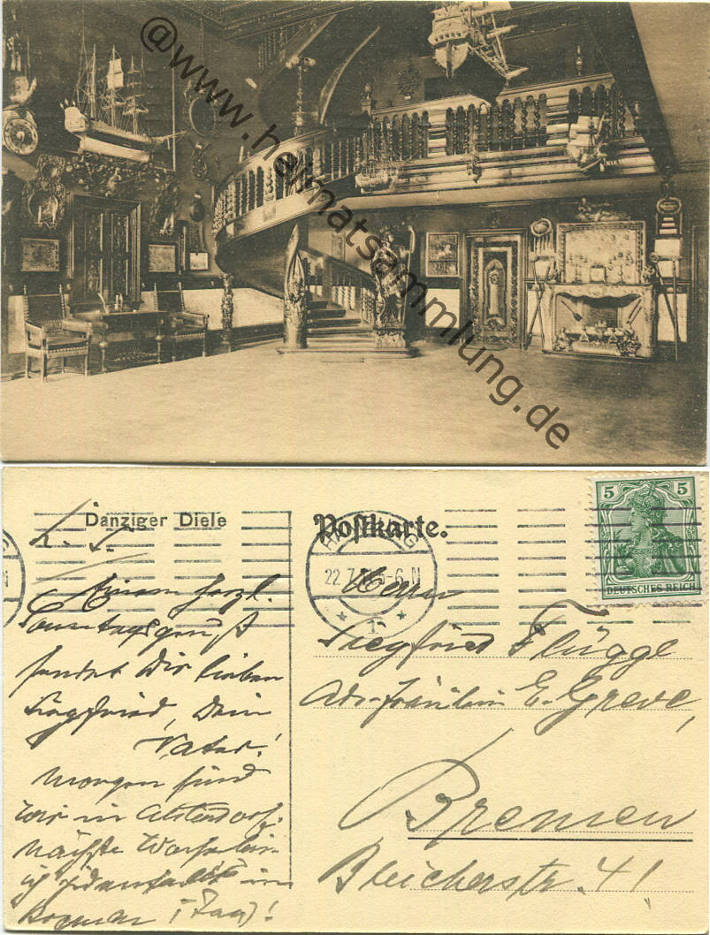 @www.heimatsammlung.de
Danziger Diele
Postkarte.
5 5
DEUTSCHES REICH
22.7. 5-6.N
* 1 *
Einen herzl.
Sonntagsgruß
sendet Dir lieben
Siegfried, Dein
Vater!
Morgen sind
wir in
nächste
im
Bremen (Tag)!
Herrn
Siegfried Flügge
Adr. Fräulein E. Greve,
Bremen
Bleicherstr. 41